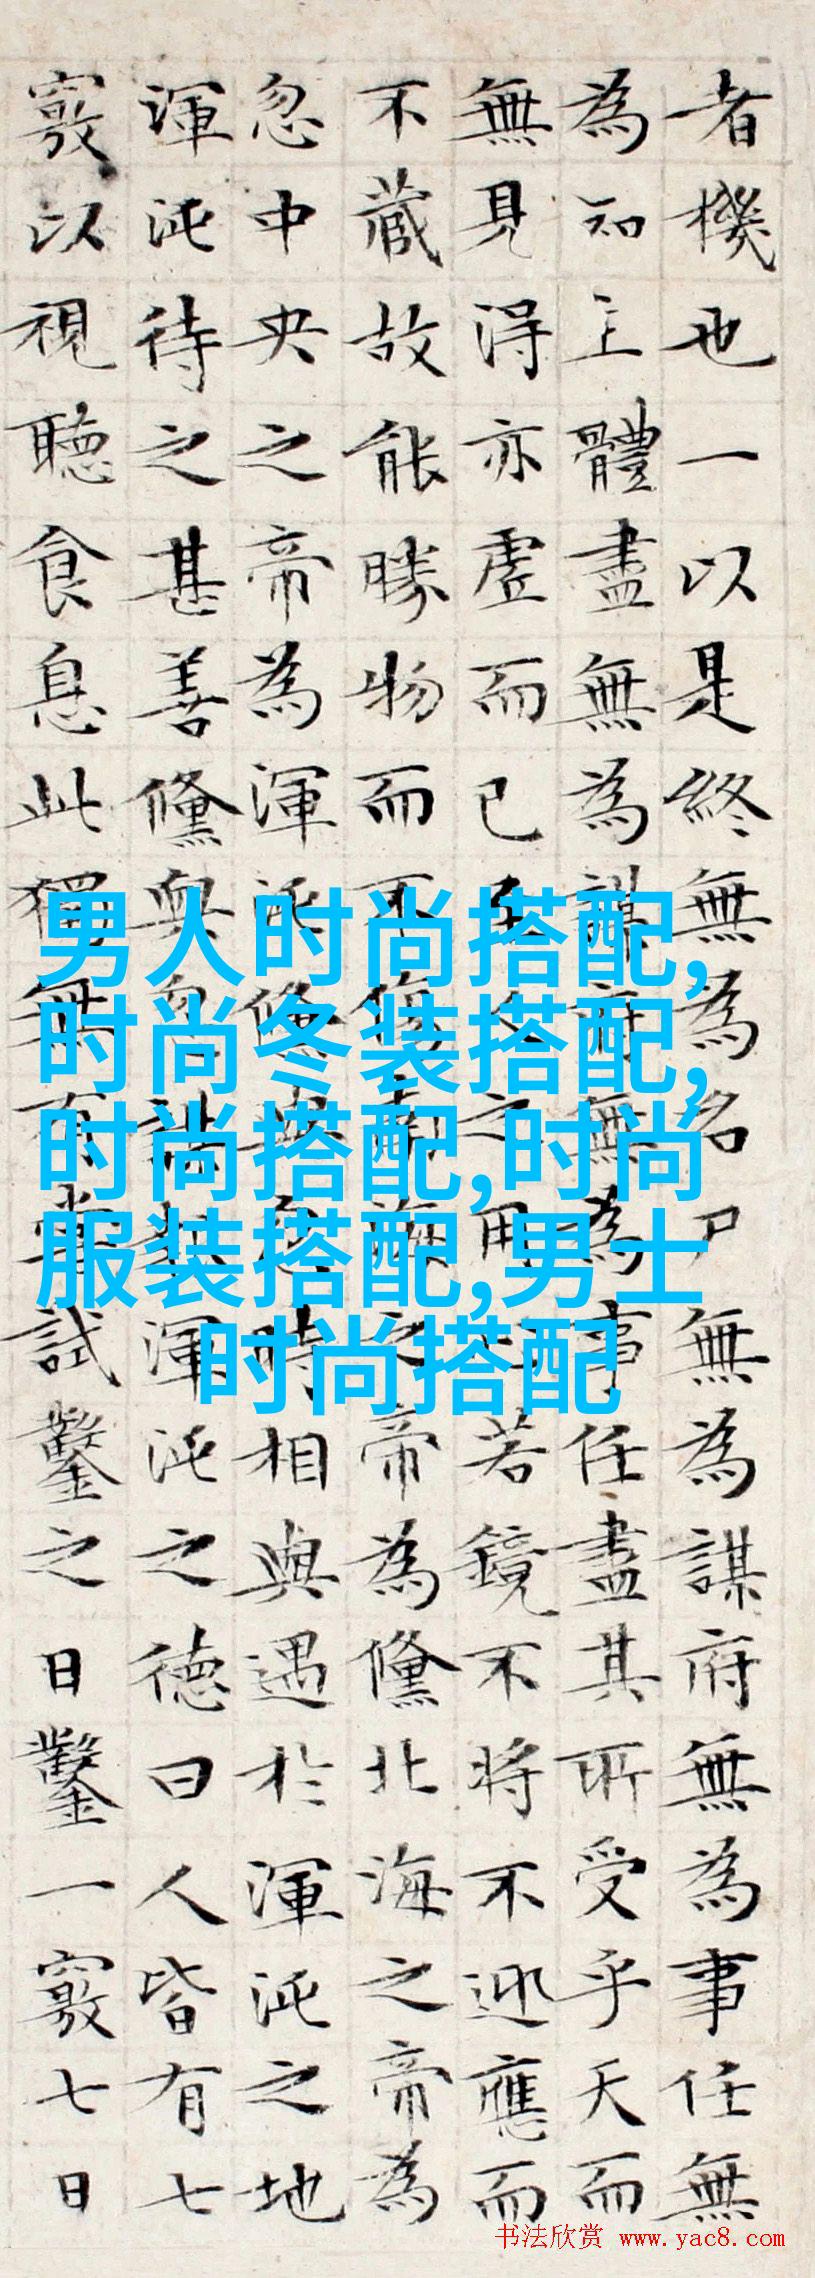 者機也一以是終無為名尸無為謀府無為事任無
為知主體盡無為謀府無為事任盡其所受乎天而
無見得亦虛而已至人之用心若鏡不將不迎應而
不藏故能勝物而不傷南海之帝為儵北海之帝為
忽中央之帝為渾沌儵與忽時相與遇於渾沌之地
渾沌待之甚善儵與忽謀報渾沌之德曰人皆有七
竅以視聽食息此獨無有嘗試鑿之日鑿一竅七日
男人时尚搭配,
时尚冬装搭配,
时尚搭配,时尚
服装搭配,男士
时尚搭配
书法欣赏 www.yac8.com